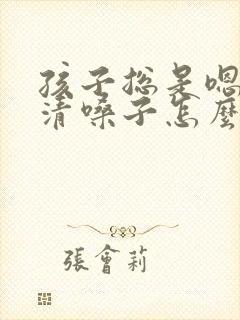 孩子总是嗯
清嗓子怎麼
張會莉